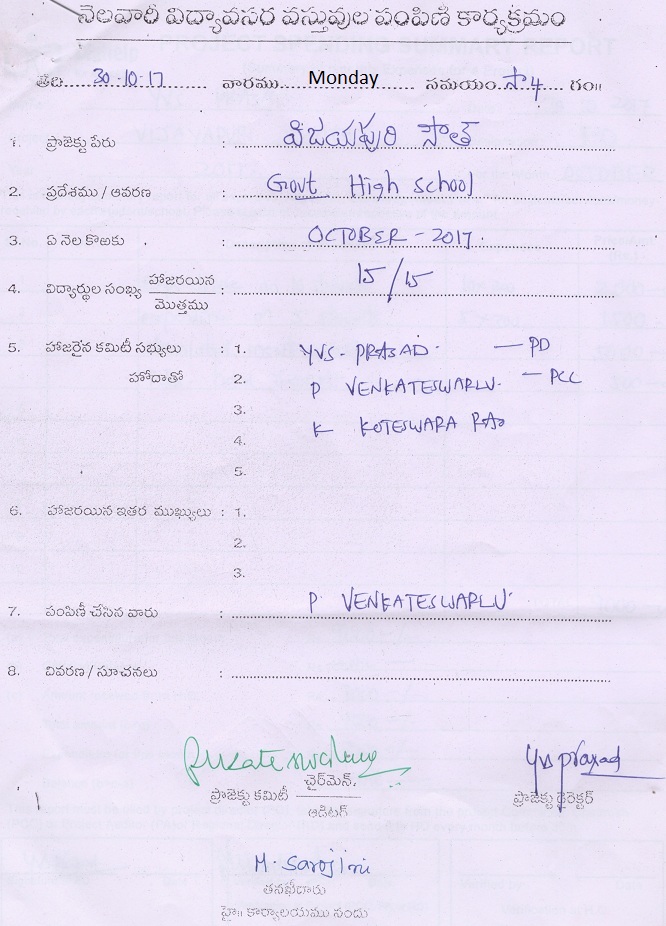 నెలవారి విద్యావసర వస్తువుల పంపిణి కార్యక్రమం
తేది. 30-10-17 వారము Monday సమయం. సా 4 గం॥
1. ప్రాజెక్టు పేరు : విజయపురి సౌత్
2. ప్రదేశము / ఆవరణ : Govt High school
3. ఏ నెల కొఱకు : OCTOBER - 2017.
4. విద్యార్థుల సంఖ్య హాజరయిన / మొత్తము : 15/15
5. హాజరైన కమిటీ సభ్యులు : 1. YVS. PRASAD. — PD
హోదాతో 2. P VENKATESWARLU. — PCC
3. K KOTESWARA RAO
4.
5.
6. హాజరయిన ఇతర ముఖ్యులు : 1.
2.
3.
7. పంపిణీ చేసిన వారు : P. VENKATESWARLU.
8. వివరణ / సూచనలు :
yvsprasad
ప్రాజెక్టు కమిటీ ఛైర్‌మెన్. / ఆడిటర్ ప్రాజెక్టు డైరెక్టర్
M. Sarojini
తనఖీదారు
హై॥ కార్యాలయము నందు